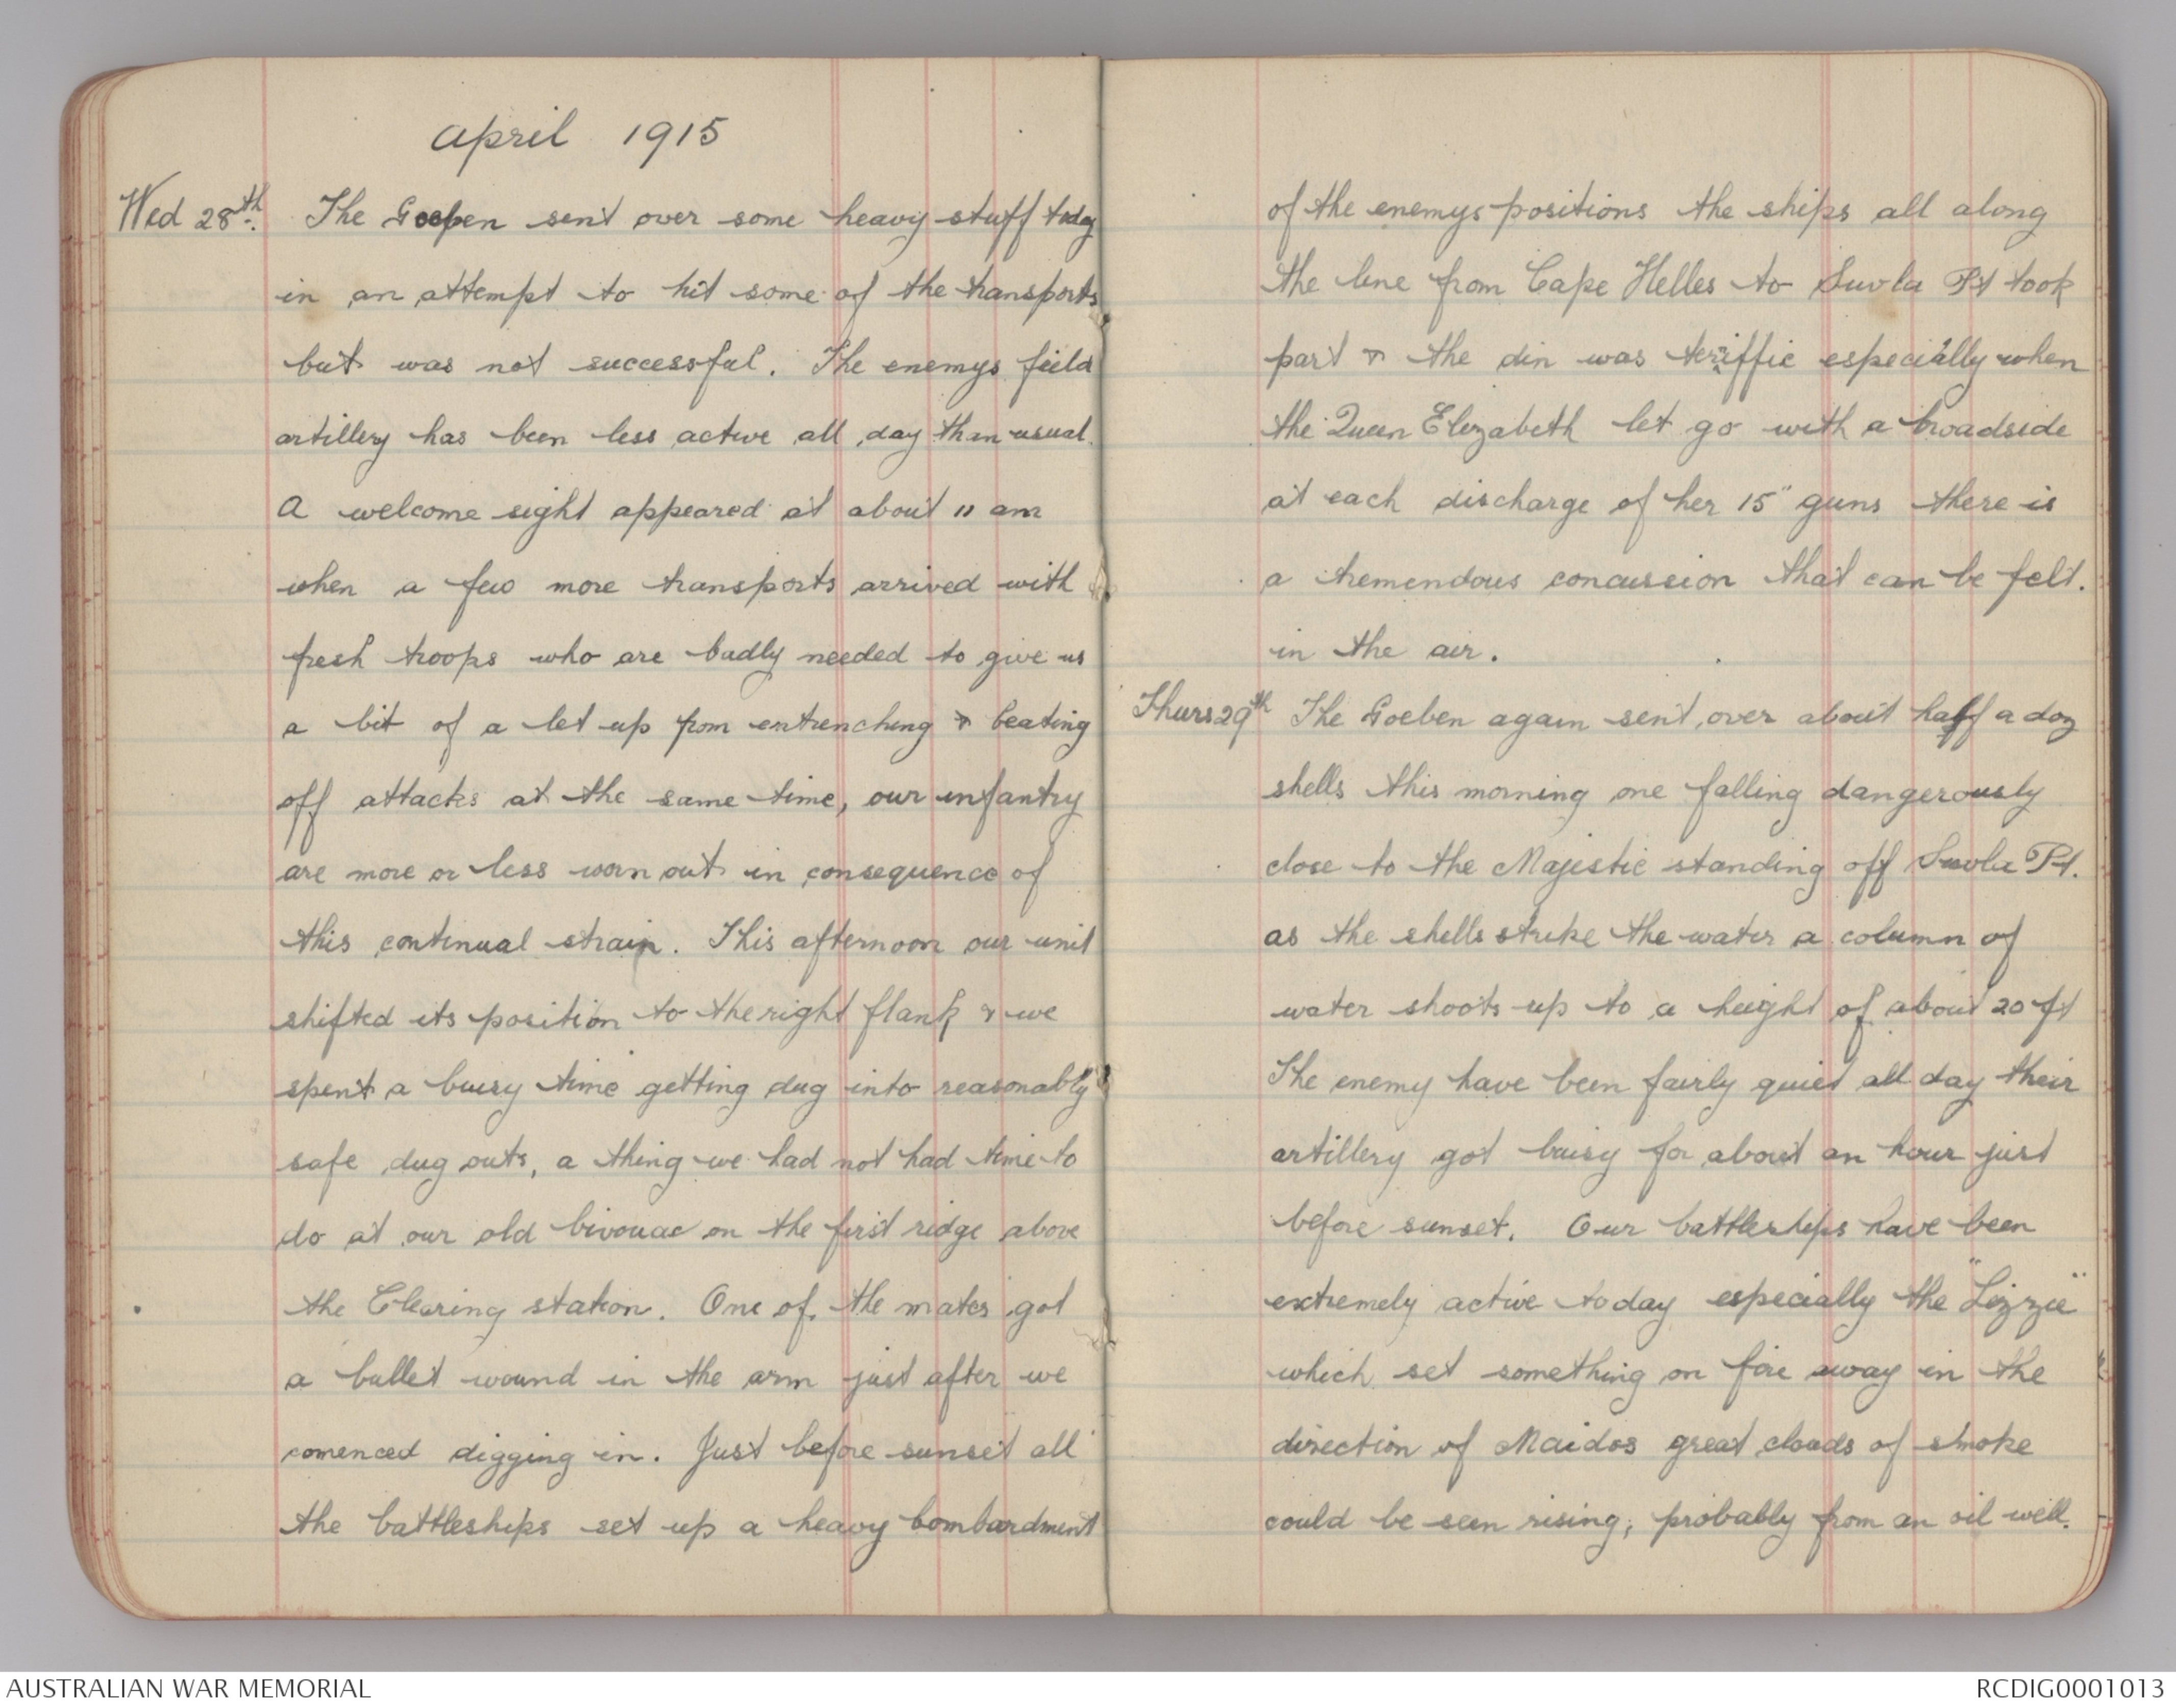 April 1915
Wed 28th. The Goeben sent over some heavy stuff today
in an attempt to hit some of the transports
but was not successful. The enemys field
artillery has been less active all day than usual.
A welcome sight appeared at about 11 am
when a few more transports arrived with
fresh troops who are badly needed to give us
a bit of a let up from entrenching & beating
off attacks at the same time, our infantry
are more or less worn out in consequence of
this continual strain. This afternoon our unit
shifted its position to the right flank & we
spent a buisy time getting dug into reasonably
safe dug outs, a thing we had not had time to
do at our old bivouac on the first ridge above
the Clearing station. One of the mates got
a bullet wound in the arm just after we
comenced digging in. Just before sunset all
the battleships set up a heavy bombardment
of the enemys positions the ships all along
the line from Cape Helles to Suvla Pt took
part & the din was teriffic especially when
the Queen Elizabeth let go with a broadside
at each discharge of her 15" guns there is
a tremendous concussion that can be felt.
in the air.
Thurs 29th The Goeben again sent over about half a doz
shells this morning one falling dangerously
close to the Majestic standing off Suvla Pt.
as the shells strike the water a column of
water shoots up to a height of about 20 ft
The enemy have been fairly quiet all day their
artillery got buisy for about an hour just
before sunset. Our battleships have been
extremely active today especially the "Lizzie"
which set something on fire away in the
direction of Maidos great clouds of smoke
could be seen rising, probably from an oil well.
AUSTRALIAN WAR MEMORIAL
RCDIG0001013